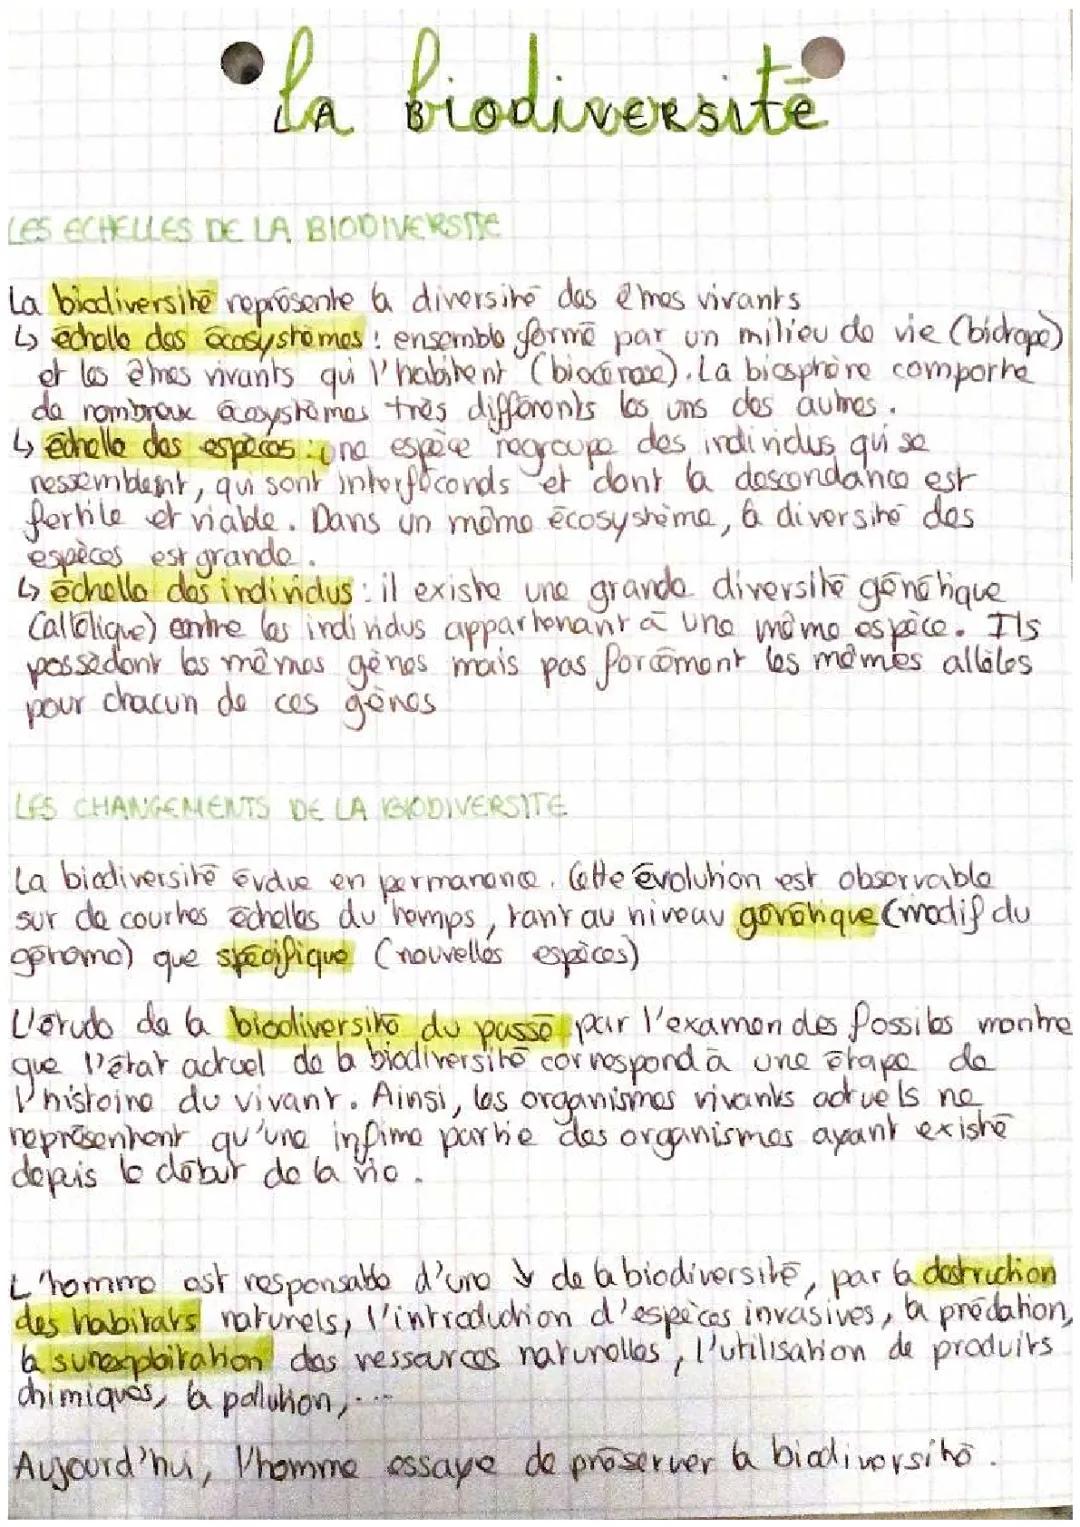 La biodiversité
LES ECHELLES DE LA BIODIVERSITE
La biodiversité représente la diversité des êtres vivants
↳ échelle des écosystèmes : ensemble formé par un milieu de vie (biotope)
et les êtres vivants qui l'habitent (biocénose). La biosphère comporte
de nombreux écosystèmes très différents les uns des autres.
↳ échelle des espèces : une espèce regroupe des individus qui se
ressemblent, qui sont interféconds et dont la descendance est
fertile et viable. Dans un même écosystème, la diversité des
espèces est grande.
↳ échelle des individus : il existe une grande diversité génétique
(allélique) entre les individus appartenant à une même espèce. Ils
possèdent les mêmes gènes mais pas forcément les mêmes allèles
pour chacun de ces gènes
LES CHANGEMENTS DE LA BIODIVERSITE
La biodiversité évolue en permanence. Cette évolution est observable
sur de courtes échelles du temps, tant au niveau génétique (modif du
génome) que spécifique (nouvelles espèces)
L'étude de la biodiversité du passé par l'examen des fossiles montre
que l'état actuel de la biodiversité correspond à une étape de
l'histoire du vivant. Ainsi, les organismes vivants actuels ne
représentent qu'une infime partie des organismes ayant existé
depuis le début de la vie.
L'homme est responsable d'une ↓ de la biodiversité, par la destruction
des habitats naturels, l'introduction d'espèces invasives, la prédation,
la surexploitation des ressources naturelles, l'utilisation de produits
chimiques, la pollution, ....
Aujourd'hui, l'homme essaye de préserver la biodiversité.